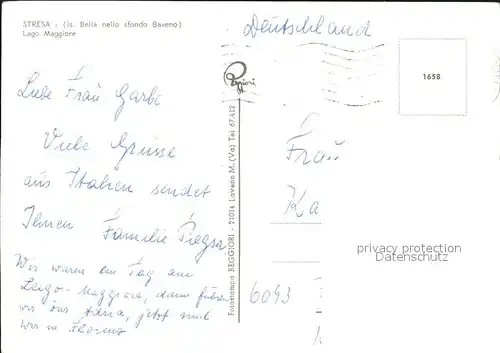 STRESA : (is. Bella nello sfondo Baveno)
Lago Maggiore
Deutschland
Reggiori
1658
Liebe Frau Garbe
Viele Grüsse
aus Italien sendet
Ihnen Familie Piegsa
Wir waren ein Tag am
Lago-Maggiore, dann fuhren
wir ins Adria, jetzt sind
wir in Florenz
Fotostampa REGGIORI - 21014 Laveno M. (Va) Tel 67.412
Frau
Ka
privacy protection
Datenschutz
6093